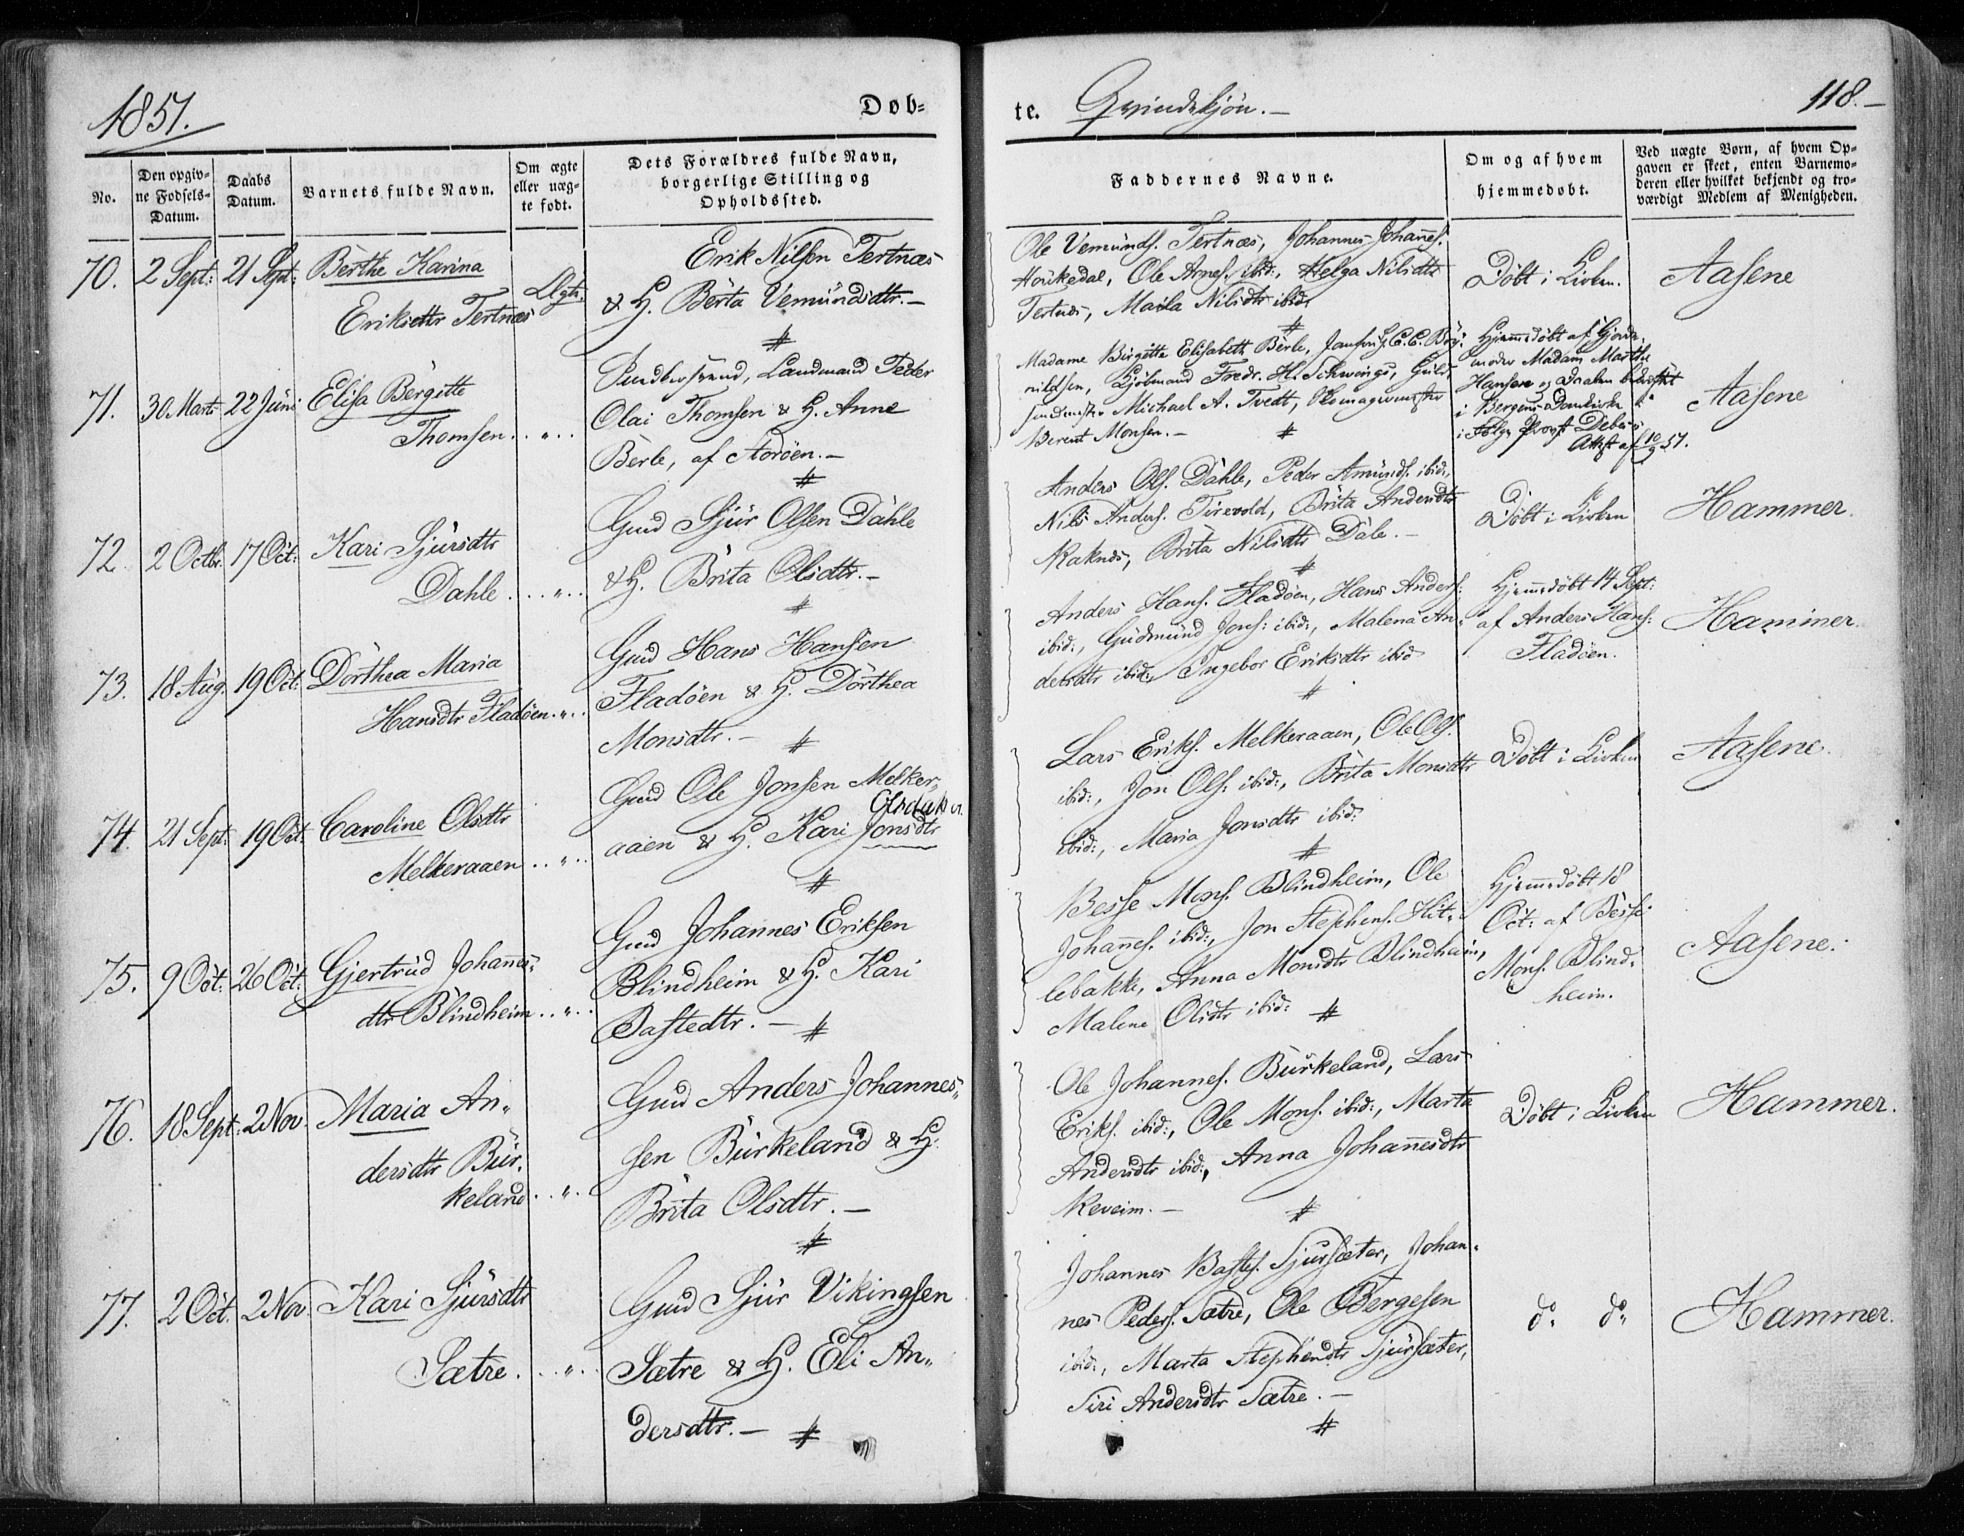 1851.
Døb-
te. Qvindekjön.
118.
No.
Den opgiv-
ne Fødsels-
Datum.
Daabs
Datum.
Barnets fulde Navn.
Om ægte
eller uæg-
te født.
Dets Forældres fulde Navn,
borgerlige Stilling og
Opholdssted.
Faddernes Navne.
Om og af hvem
hjemmedøbt.
Ved uægte Børn, af hvem Op-
gaven er skeet, enten Barnemo-
deren eller hvilket bekjendt og tro-
værdigt Medlem af Menigheden.
70. 2 Sept: 21 Sept: Berthe Karina
Eriksdtr Tertnæs
Ægte.
Erik Nilsen Tertnæs
& H. Berta Vemundsdtr. –
Ole Vemunds. Tertnæs, Johannes Johañes.
Houkedal, Ole Arnes. ibid:, Helga Nilsdtr
Tertnæs, Maila Nilsdtr ibid:
Döbt i Kirken.
Aasene
71. 30 Mart: 22 Juni Elisa Bergitte
Thomsen . . „ . .
Landmand Peder
Olai Thomsen & H. Anne
Berle, af Aoröen. –
Madame Birgitte Elisabeth Berle,
Kjöbmand Fredr. H. Schwings,
Michael A. Tvedt,
Berent Monsen. –
Hjemedöbt af Gjorde-
moder Madam Marthe
Hansen og Daaben
i Bergens Domkirke
i Følge Provst
Attest af 10/9 51.
Aasene
72. 2 Octbr. 17 Oct: Kari Sjursdtr
Dahle . . „ . .
Gmd Sjur Olsen Dahle
& H. Brita Olsdtr. –
Anders Ols. Dahle, Peder Amunds. ibid:,
Nils Anders. Tirevold, Brita Andersdtr
Raknes, Brita Nilsdtr Dale. –
Döbt i Kirken
Hammer.
73. 18 Aug. 19 Oct: Dorthea Maria
Hansdtr Fladöen . „ . .
Gmd Hans Hansen
Fladöen & H. Dorthea
Monsdtr. –
Anders Hans. Fladöen, Hans Anders:
ibid:, Gudmund Jons: ibid:, Malena An-
dersdtr ibid:, Ingebor Eriksdtr ibid
Hjemedöbt 14 Sept:
af Anders Hans:
Fladöen.
Hammer.
74. 21 Sept: 19 Oct: Caroline Olsdtr
Melkeraaen . . „ . .
Gmd Ole Jonsen Melker-
aaen & H. Kari Jonsdtr
Lars Eriks. Melkeraaen, Ole Ols.
ibid:, Jon Ols. ibid:, Brita Monsdtr
ibid:, Maria Jonsdtr ibid:
Döbt i Kirken
Aasene.
75. 9 Oct: 26 Oct: Gjertrud Johañes-
dtr Blindheim . . „ . .
Gmd Johannes Eriksen
Blindheim & H. Kari
Bastedtr. –
Besse Mons. Blindheim, Ole
Johañes. ibid:, Jon Stephens. Hit-
lebakke, Anna Monsdtr Blindheim,
Malene Olsdtr ibid:
Hjemedöbt 18
Oct: af Besse
Mons. Blind-
heim.
Aasene.
76. 18 Sept: 2 Nov. Maria An-
dersdtr Bur-
keland . . „ . .
Gmd Anders Johannes-
sen Burkeland & H.
Brita Olsdtr. –
Ole Johannes. Burkeland, Lars
Eriks. ibid:, Ole Mons. ibid:, Marta
Andersdtr ibid:, Anna Johañesdtr
Reveim. –
Döbt i Kirken
Hammer.
77. 2 Oct. 2 Nov. Kari Sjursdtr
Sætre . . „ . .
Gmd Sjur Vikingsen
Sætre & H. Eli An-
dersdtr. –
Johannes Bastes. Sjursæter, Johan-
nes Peders. Sætre, Ole Bergesen
ibid:, Marta Stephensdtr Sjursæter,
Siri Andersdtr Sætre. –
do do
Hammer.